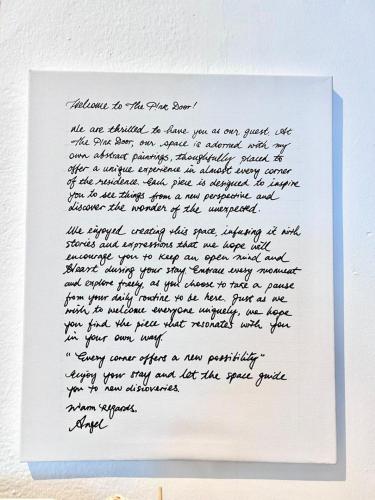 Welcome to The Pink Door!
We are thrilled to have you as our guest. At
The Pink Door, our space is adorned with my
own abstract paintings, thoughtfully placed to
offer a unique experience in almost every corner
of the residence. Each piece is designed to inspire
you to see things from a new perspective and
discover the wonder of the unexpected.
We enjoyed creating this space, infusing it with
stories and expressions that we hope will
encourage you to keep an open mind and
heart during your stay. Embrace every moment
and explore freely, as you choose to take a pause
from your daily routine to be here. Just as we
wish to welcome everyone uniquely, we hope
you find the piece that resonates with you
in your own way.
"Every corner offers a new possibility"
Enjoy your stay and let the space guide
you to new discoveries.
Warm Regards,
Angel